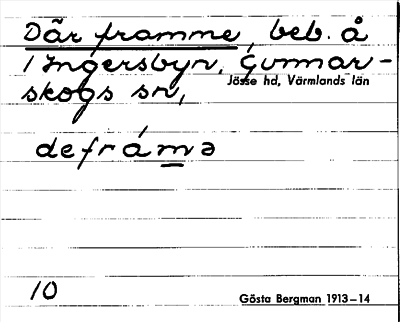 Där framme, beb. å
1 Ingersbyn, Gunnar-
skogs sn,
Jösse hd, Värmlands län
deframə
10
Gösta Bergman 1913–14